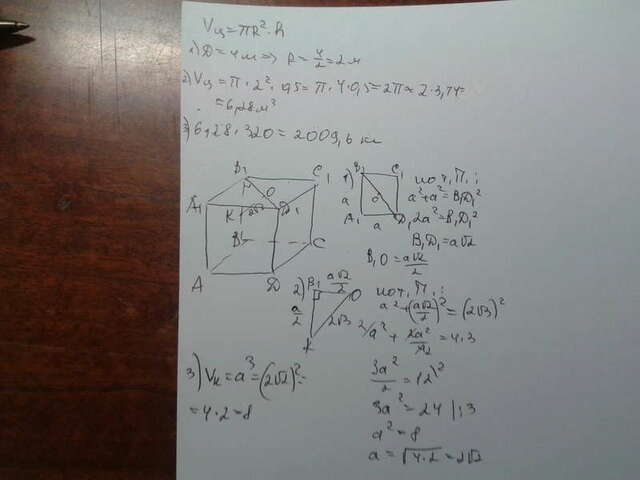 Vц=πR²·h
1) D=4м => R=4/2=2м
2) Vц=π·2²·0,5=π·4·0,5=2π≈2·3,14=
=6,28м³
3) 6,28·320=2009,6 кг
B₁ C₁
A₁ O D₁
K
B C
A D
1) B₁ C₁
a O
A₁ a D₁
по т. П.:
a²+a²=B₁D₁²
2a²=B₁D₁²
B₁D₁=a√2
B₁O=a√2/2
2) B₁ a√2/2 O
a/2 2√3
K
по т. П.:
a²+(a√2/2)²=(2√3)²
a²+2a²/4=4·3
3a²/2=12
3a²=24 |:3
a²=8
a=√4·2=2√2
3) Vк=a³=(2√2)²=
=4·2=8